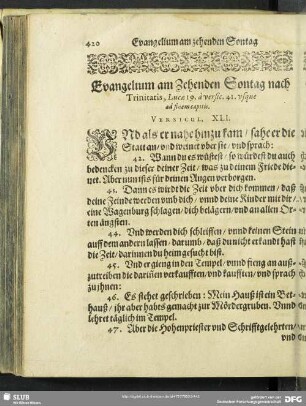 420 Evangelium am zehenden Sontag
Evangelium am Zehenden Sontag nach
Trinitatis, Lucæ 19. à versic. 41. vsque
ad finem capitis.
VERSICUL. XLI.
VNd als er nahe hinzu kam / sahe er die
Statt an / vnd weinet vber sie / vnd sprach:
42. Wann du es wüstest / so würdest du auch
bedencken zu dieser deiner Zeit / was zu deinem Friede die-
net. Aber nun ists für deinen Augen verborgen.
43. Dann es wirdt die Zeit vber dich kommen / daß
deine Feinde werden vmb dich / vnnd deine Kinder mit dir /
eine Wagenburg schlagen / dich belägern / vnd an allen Or-
ten ängsten.
44. Vnd werden dich schleiffen / vnnd keinen Stein
auff dem andern lassen / darumb / daß du nicht erkandt hast
die Zeit / darinnen du heimgesucht bist.
45. Vnd er gieng in den Tempel / vnnd fieng an auß-
zutreiben die darinnen verkaufften / vnd kaufften / vnd sprach
zu ihnen:
46. Es stehet geschrieben: Mein Hauß ist ein Bet-
hauß / ihr aber habts gemacht zur Mördergruben. Vnnd
lehret täglich im Tempel.
47. Aber die Hohenpriester vnd Schrifftgelehrten /
vnd
SLUB
Wir führen Wissen.
gefördert von der
Deutschen Forschungsgemeinschaft
DFG